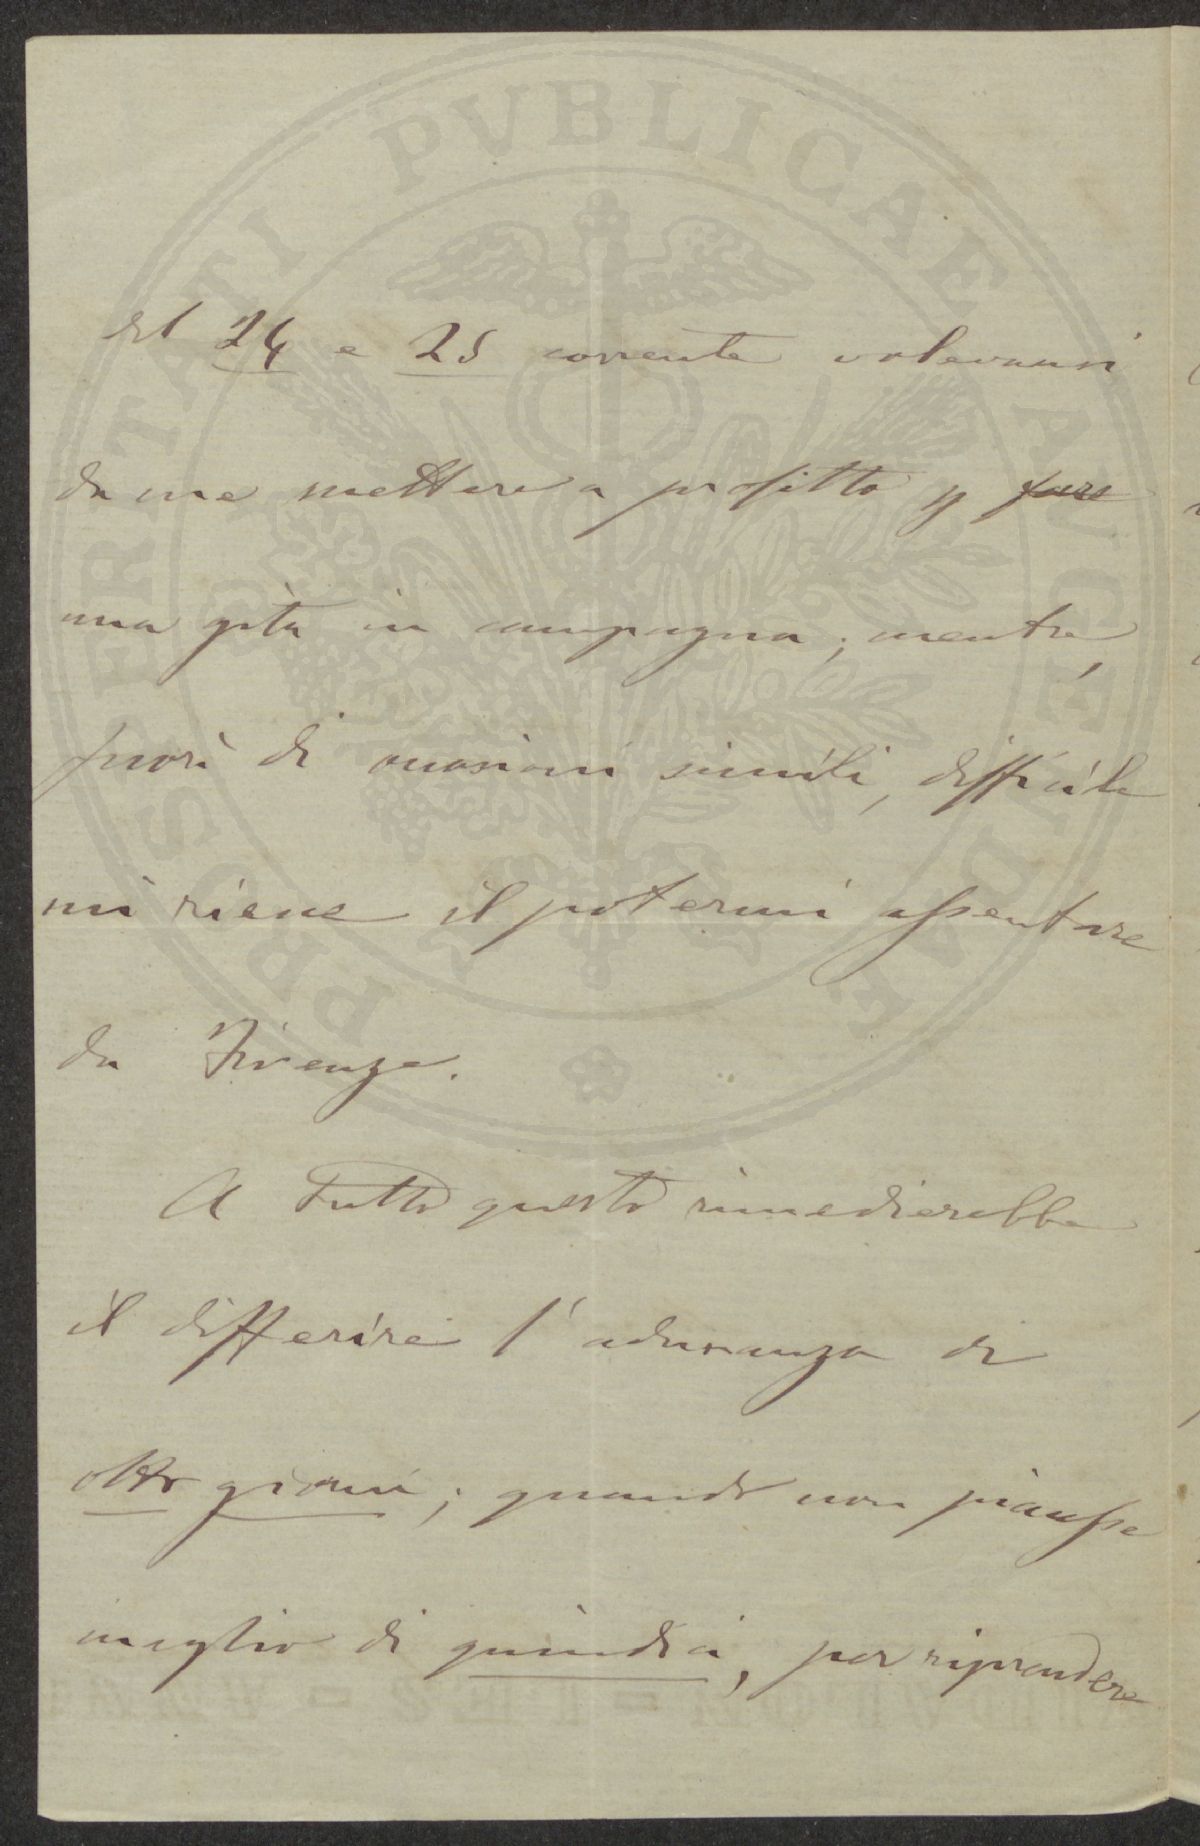 PROSPERITATI PVBLICAE AVGENDAE
del 24 e 25 corrente volevansi
da me mettere a profitto p fare
una gita in campagna; mentre,
fuori di occasioni simili, difficile
mi riene il potermi assentare
da Firenze.
A tutto questo rimedierebbe
il differire l'adunanza di
otto giorni; quando non piacesse
meglio di quindici, per riprendere